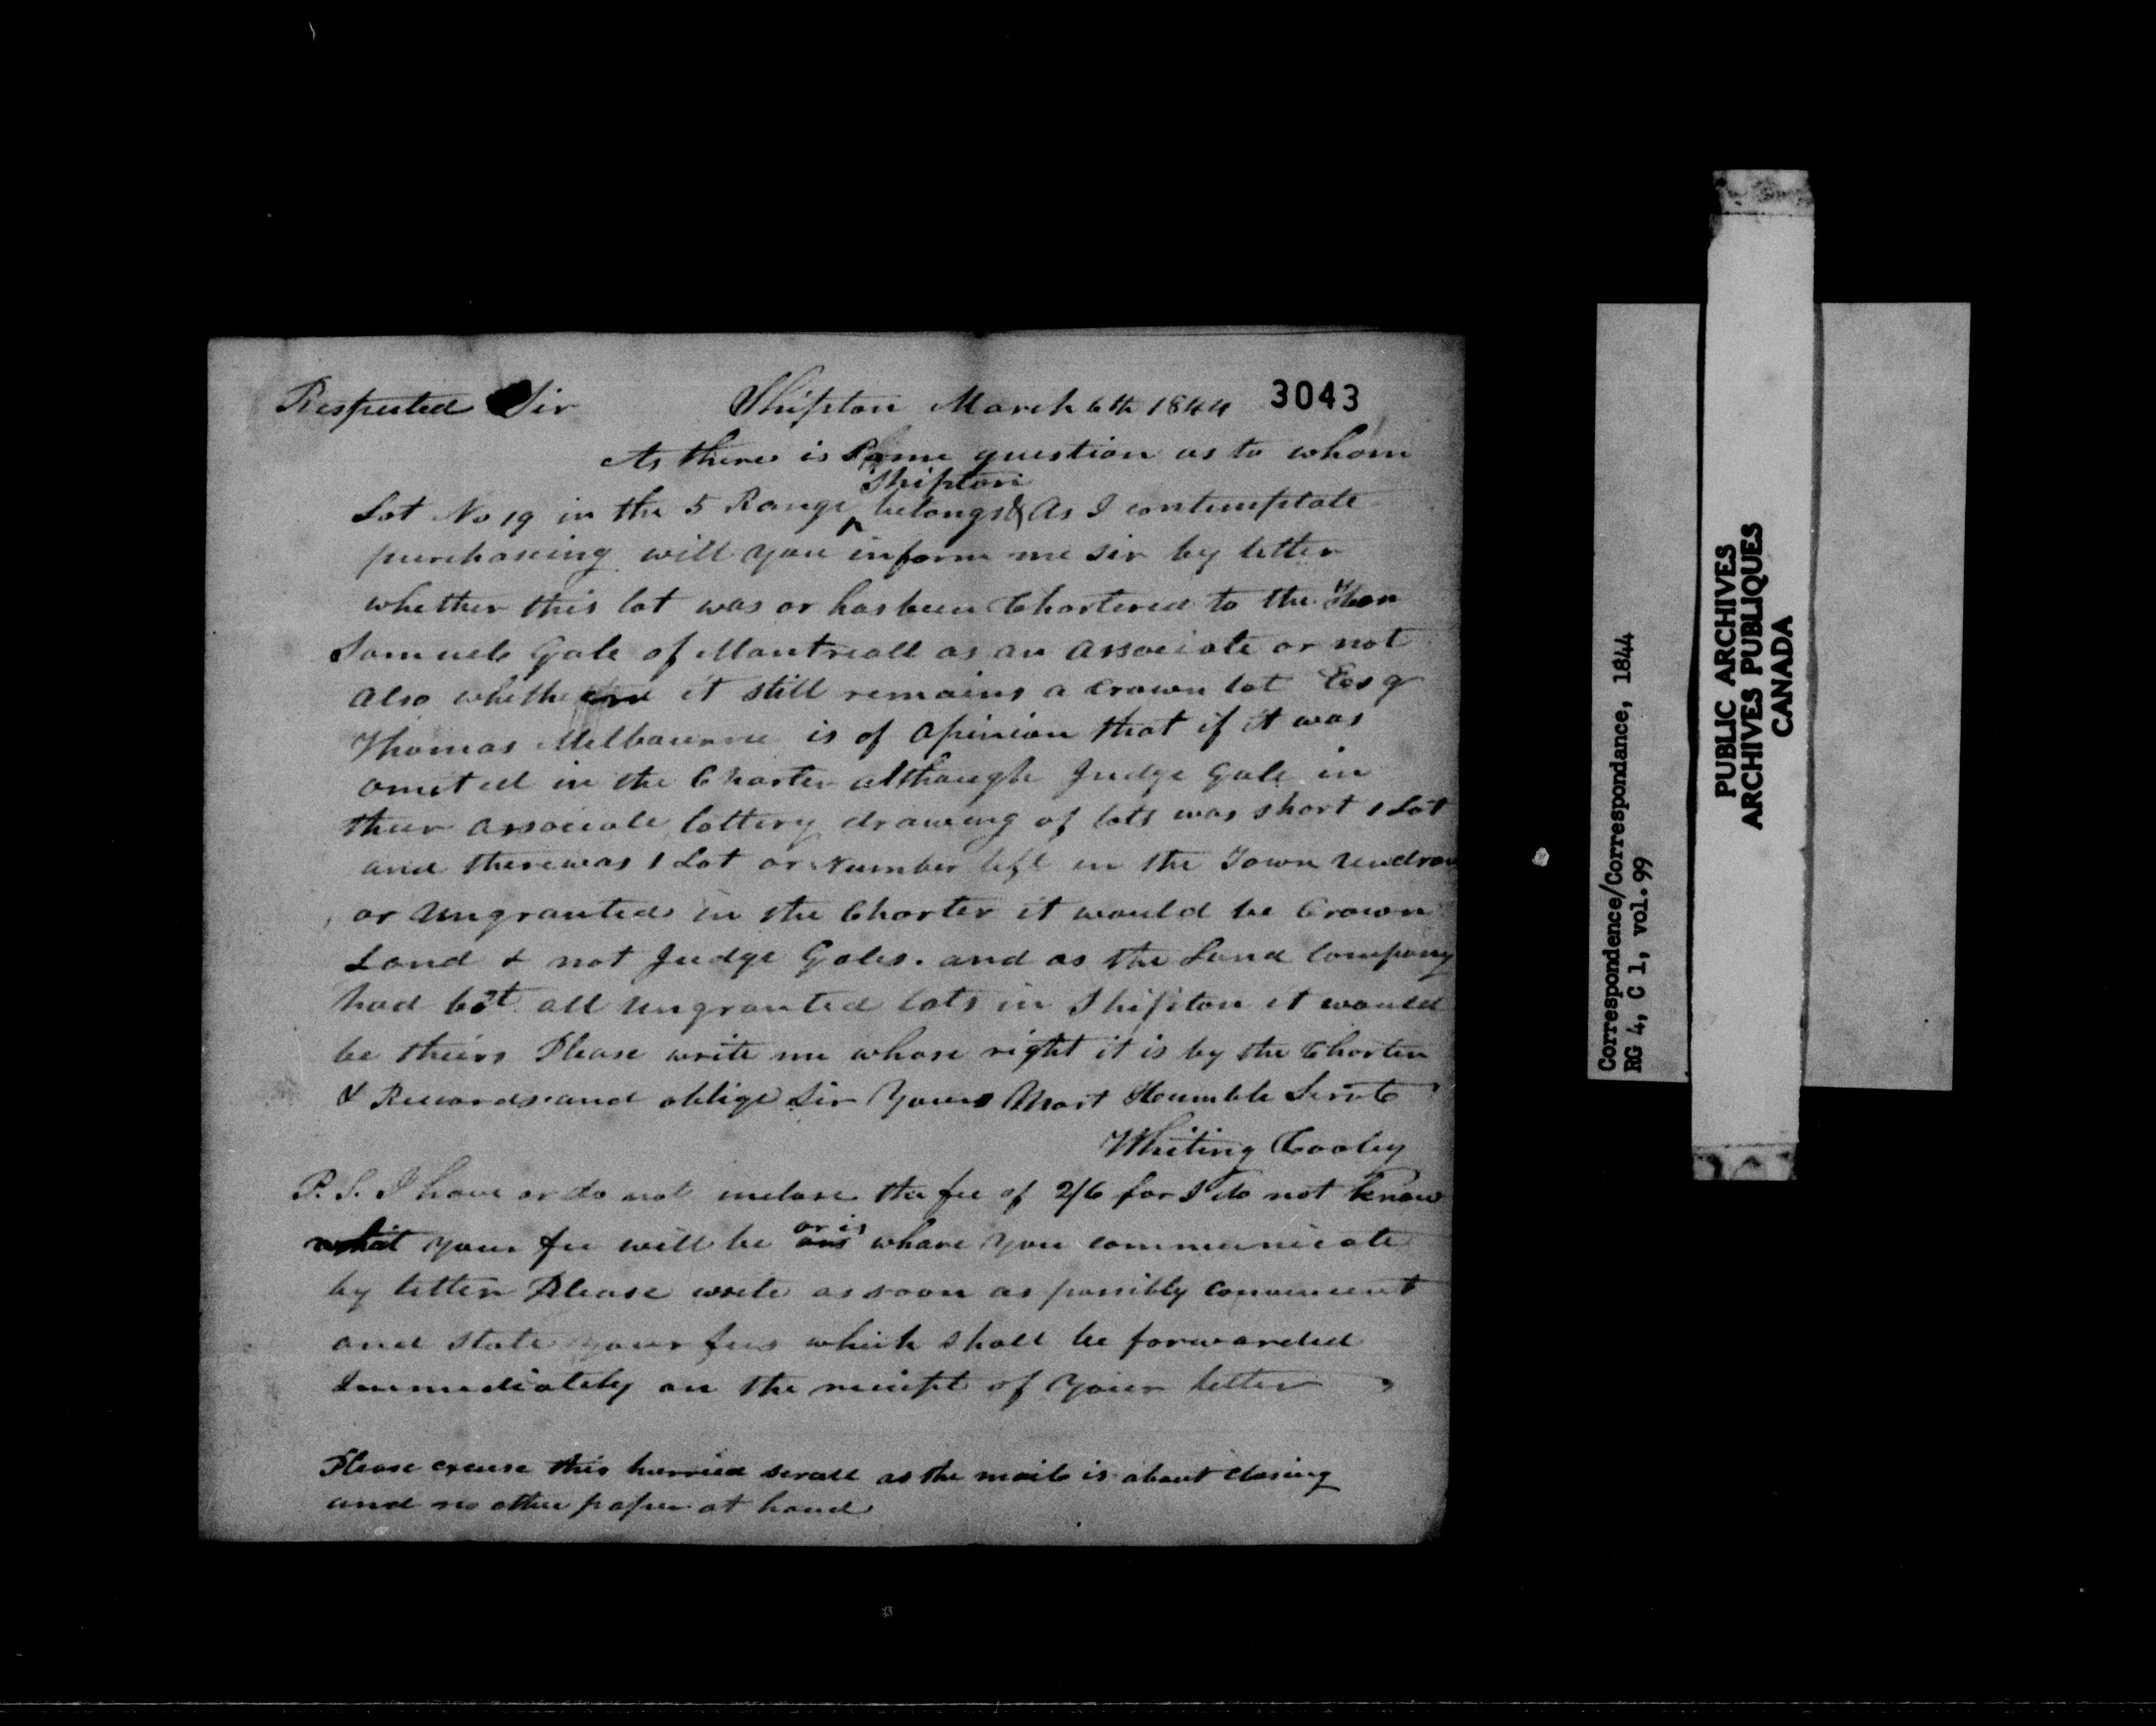 Respected Sir Shipton March 6th 1844 3043
As there is Some question as to whom
Shipton
Lot No 19 in the 5 Range ^ belongs & As I contemplate
purchasing will you inform me sir by letter
whether this lot was or has been Chartered to the Hon
Samuel Gale of Montreall as an associate or not
also whether it still remains a Crown lot Esq
Thomas Melbourne is of opinion that if it was
omited in the Charter although Judge Gale in
their associate lottery drawing of lots was short 1 Lot
and there was 1 Lot or Number left in the Town Undrawn
or Ungranted in the Charter it would be Crown
Land & not Judge Gales. and as the Land Company
had bot all Ungranted lots in Shipton it would
be theirs Please write me whose right it is by the Charter
& Records and oblige Sir Yours Most Humble Servt
Whiting Cooley
P. S. I have or do not inclose the fee of 2/6 for I do not know
or is
what your fee will be whare you communicate
by letter Please write as soon as possibly convenient
and state your fees which shall be forwarded
Immediately on the receipt of Your letter
Please excuse this hurried scrall as the mail is about closing
and no other paper at hand
Correspondence/Correspondance, 1844
RG 4, C 1, vol.99
PUBLIC ARCHIVES
ARCHIVES PUBLIQUES
CANADA